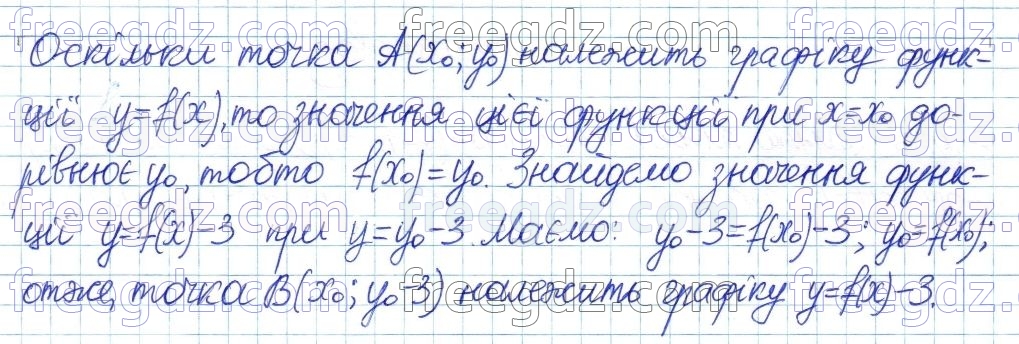 Оскільки точка A(x₀; y₀) належить графіку функ-
ції y=f(x), то значення цієї функції при x=x₀ до-
рівнює y₀, тобто f(x₀)=y₀. Знайдемо значення функ-
ції y=f(x)-3 при y=y₀-3. Маємо: y₀-3=f(x₀)-3; y₀=f(x₀);
отже, точка B(x₀; y₀-3) належить графіку y=f(x)-3.
freegdz.com